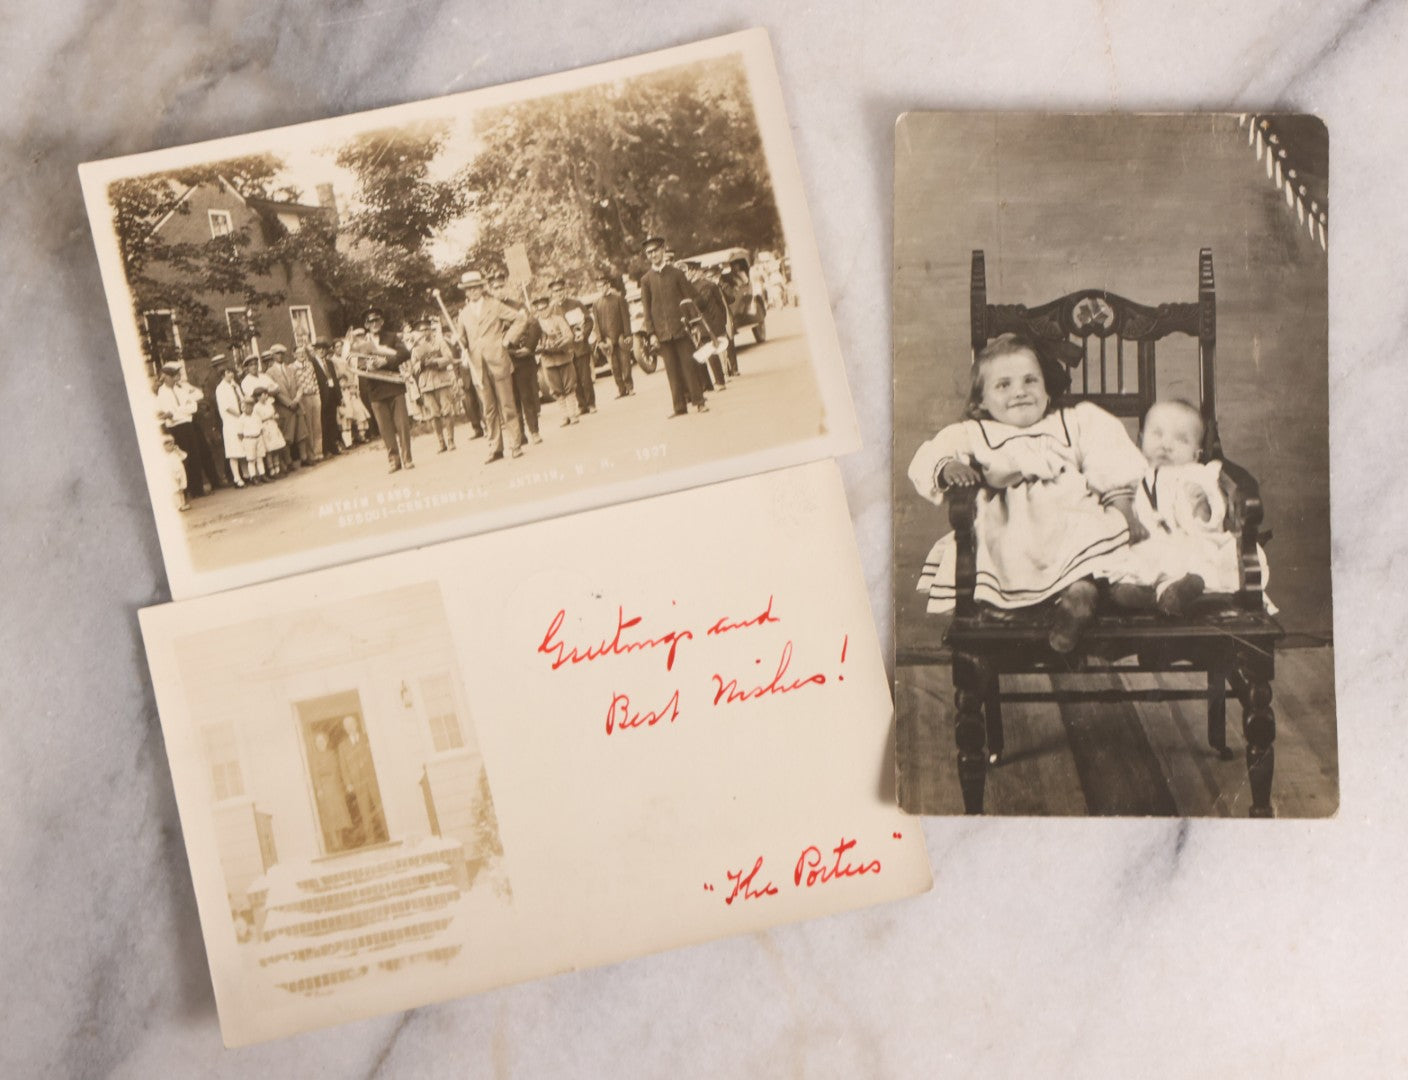 ANTRIM BAND,
SESQUI-CENTENNIAL, ANTRIM, N. H. 1927
Greetings and
Best Wishes!
"The Porters"